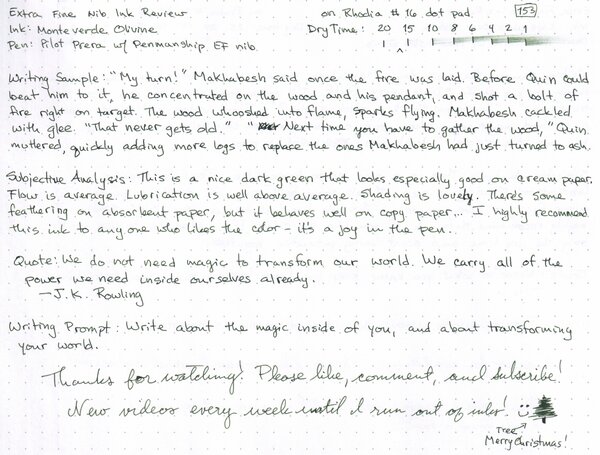 Extra Fine Nib Ink Review on Rhodia #16 dot pad. 153
Ink: Monteverde Olivine Dry Time: 20 15 10 8 6 4 2 1
Pen: Pilot Prera w/ Penmanship EF nib
Writing Sample: "My turn!" Makhabesh said once the fire was laid. Before Quin could
beat him to it, he concentrated on the wood and his pendant, and shot a bolt of
fire right on target. The wood whooshed into flame, sparks flying. Makhabesh cackled
with glee. "That never gets old." "Next time you have to gather the wood," Quin
muttered, quickly adding more logs to replace the ones Makhabesh had just turned to ash.
Subjective Analysis: This is a nice dark green that looks especially good on cream paper.
Flow is average. Lubrication is well above average. Shading is lovely. There's some
feathering on absorbent paper, but it behaves well on copy paper... I highly recommend
this ink to any one who likes the color - it's a joy in the pen.
Quote: We do not need magic to transform our world. We carry all of the
power we need inside ourselves already.
—J.K. Rowling
Writing Prompt: Write about the magic inside of you, and about transforming
your world.
Thanks for watching! Please like, comment, and subscribe!
New videos every week until I run out of inks! :)
Tree
Merry Christmas!